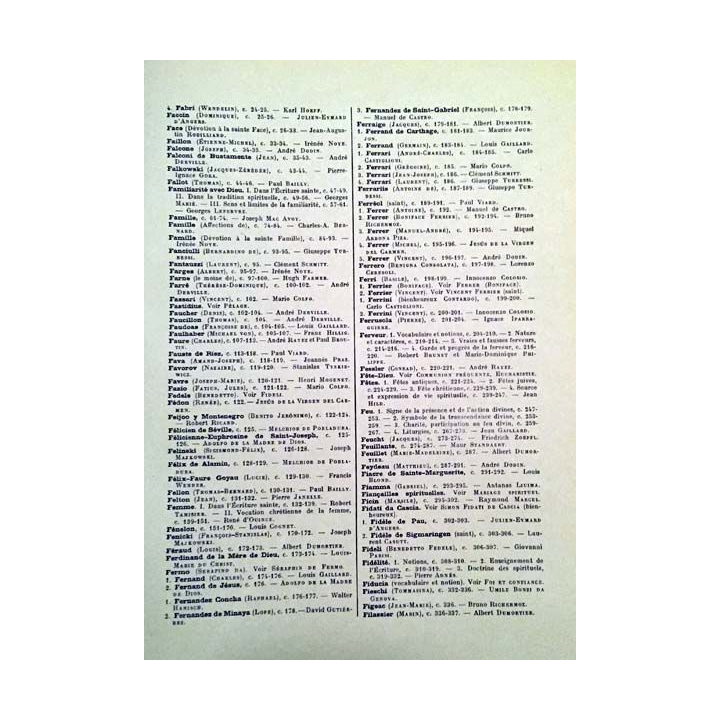 4. Fabri (Wendelin), c. 24-25. — Karl Hoeff.
Faccin (Dominique), c. 25-26. — Julien-Eymard
d'Angers.
Face (Dévotion à la sainte Face), c. 26-33. — Jean-Augus-
tin Robilliard.
Faillon (Étienne-Michel), c. 33-34. — Irénée Noye.
Falcone (Joseph), c. 34-35. — André Dodin.
Falconi de Bustamente (Jean), c. 35-43. — André
Derville.
Falkowski (Jacques-Zérébée), c. 43-44. — Pierre-
Ignace Goka.
Fallot (Thomas), c. 44-46. — Paul Bailly.
Familiarité avec Dieu. I. Dans l'Écriture sainte, c. 47-49.
II. Dans la tradition spirituelle, c. 49-56. — Georges
Marié. — III. Sens et limites de la familiarité, c. 57-61.
— Georges Lefebvre.
Famille, c. 61-74. — Joseph Mac Avoy.
Famille (Affections de), c. 74-84. — Charles-A. Ber-
nard.
Famille (Dévotion à la sainte Famille), c. 84-93. —
Irénée Noye.
Fanciulli (Bernardino de), c. 93-95. — Giuseppe Tur-
bessi.
Fantauzzi (Laurent), c. 95. — Clément Schmitt.
Farges (Albert), c. 95-97. — Irénée Noye.
Farne (le moine de), c. 97-100. — Hugh Farmer.
Farré (Thérèse-Dominique), c. 100-102. — André
Derville.
Fassari (Vincent), c. 102. — Mario Colpo.
Fastidius. Voir Pélage.
Faucher (Denis), c. 102-104. — André Derville.
Faucillon (Thomas), c. 104. — André Derville.
Faudoas (Françoise de), c. 104-105. — Louis Gaillard.
Faulhaber (Michael von), c. 105-107. — Franz Hillig.
Faure (Charles), c. 107-113. — André Rayez et Paul Brou-
tin.
Fauste de Riez, c. 113-118. — Paul Viard.
Fava (Amand-Joseph), c. 118-119. — Joannès Praé.
Favorov (Nazaire), c. 119-120. — Stanislas Tyszkie-
wicz.
Favre (Joseph-Marie), c. 120-121. — Henri Mogenet.
Fazio (Fatius, Jules), c. 121-122. — Mario Colpo.
Fedele (Benedetto). Voir Fideli.
Fédon (Renée), c. 122. — Jesús de la Virgen del Car-
men.
Feijoo y Montenegro (Benito Jerónimo), c. 122-124.
— Robert Ricard.
Félicien de Séville, c. 125. — Melchior de Pobladura.
Félicienne-Euphrosine de Saint-Joseph, c. 125-
126. — Adolfo de la Madre de Dios.
Felinski (Sigismond-Félix), c. 126-128. — Joseph
Majkowski.
Félix de Alamin, c. 128-129. — Melchior de Pobla-
dura.
Félix-Faure Goyau (Lucie), c. 129-130. — Francis
Wender.
Fellon (Thomas-Bernard), c. 130-131. — Paul Bailly.
Felton (Jean), c. 131-132. — Pierre Janelle.
Femme. I. Dans l'Écriture sainte, c. 132-139. — Robert
Tamisier. — II. Vocation chrétienne de la femme,
c. 139-151. — René d'Ouince.
Fénelon, c. 151-170. — Louis Cognet.
Fenicki (François-Stanislas), c. 170-172. — Joseph
Majkowski.
Féraud (Louis), c. 172-173. — Albert Dumortier.
Ferdinand de la Mère de Dieu, c. 173-174. — Louis-
Marie du Christ.
Fermo (Serafino da). Voir Séraphin de Fermo.
1. Fernand (Charles), c. 174-176. — Louis Gaillard.
2. Fernand de Jésus, c. 176. — Adolfo de la Madre
de Dios.
1. Fernandez Concha (Raphael), c. 176-177. — Walter
Hanisch.
2. Fernandez de Minaya (Lope), c. 178. — David Gutiér-
rez.
3. Fernandez de Saint-Gabriel (François), c. 178-179.
— Manuel de Castro.
Ferraige (Jacques), c. 179-181. — Albert Dumortier.
1. Ferrand de Carthage, c. 181-183. — Maurice Jour-
jon.
2. Ferrand (Germain), c. 183-184. — Louis Gaillard.
1. Ferrari (André-Charles), c. 184-185. — Carlo
Castiglioni.
2. Ferrari (Grégoire), c. 185. — Mario Colpo.
3. Ferrari (Jean-Joseph), c. 186. — Clément Schmitt.
4. Ferrari (Laurent), c. 186. — Giuseppe Turbessi.
Ferrariis (Antoine de), c. 187-189. — Giuseppe Tur-
bessi.
Ferréol (saint), c. 189-191. — Paul Viard.
1. Ferrer (Antoine), c. 192. — Manuel de Castro.
2. Ferrer (Boniface Ferrier), c. 192-194. — Bruno
Richermoz.
3. Ferrer (Manuel-André), c. 194-195. — Miquel
Arbona Piza.
4. Ferrer (Michel), c. 195-196. — Jesús de la Virgen
del Carmen.
5. Ferrer (Vincent), c. 196-197. — André Dodin.
Ferrero (Benigna Consolata), c. 197-198. — Lorenzo
Ceresoli.
Ferri (Basile), c. 198-199. — Innocenzo Colosio.
1. Ferrier (Boniface). Voir Ferrer (Boniface).
2. Ferrier (Vincent). Voir Vincent Ferrier (saint).
1. Ferrini (bienheureux Contardo), c. 199-200. —
Carlo Castiglioni.
2. Ferrini (Vincent), c. 200-201. — Innocenzo Colosio.
Ferrusola (Pierre), c. 201-204. — Ignace Iparra-
guirre.
Ferveur. 1. Vocabulaire et notions, c. 204-210. — 2. Nature
et caractères, c. 210-214. — 3. Vraies et fausses ferveurs,
c. 214-216. — 4. Garde et progrès de la ferveur, c. 216-
220. — Robert Brunet et Marie-Dominique Phi-
lippe.
Fessler (Conrad), c. 220-221. — André Rayez.
Fête-Dieu. Voir Communion fréquente, Eucharistie.
Fêtes. 1. Fêtes antiques, c. 221-224. — 2. Fêtes juives,
c. 224-229. — 3. Fête chrétienne, c. 229-239. — 4. Source
et expression de vie spirituelle, c. 239-247. — Jean
Hild.
Feu. 1. Signe de la présence et de l'action divines, c. 247-
253. — 2. Symbole de la transcendance divine, c. 253-
259. — 3. Charité, participation au feu divin, c. 259-
267. — 4. Liturgies, c. 267-273. — Jean Gaillard.
Feucht (Jacques), c. 273-274. — Friedrich Zoepfl.
Feuillants, c. 274-287. — Maur Standaert.
Feuillet (Marie-Madeleine), c. 287. — Albert Dumor-
tier.
Feydeau (Matthieu), c. 287-291. — André Dodin.
Fiacre de Sainte-Marguerite, c. 291-292. — Louis
Blond.
Fiamma (Gabriel), c. 293-295. — Antanas Liuima.
Fiançailles spirituelles. Voir Mariage spirituel.
Ficin (Marsile), c. 295-302. — Raymond Marcel.
Fidati da Cascia. Voir Simon Fidati de Cascia (bien-
heureux).
1. Fidèle de Pau, c. 302-303. — Julien-Eymard
d'Angers.
2. Fidèle de Sigmaringen (saint), c. 303-306. — Lau-
rent Casutt.
Fideli (Benedetto Fedele), c. 306-307. — Giovanni
Parisi.
Fidélité. 1. Notions, c. 308-310. — 2. Enseignement de
l'Écriture, c. 310-319. — 3. Doctrine des spirituels,
c. 319-332. — Pierre Adnès.
Fiducia (vocabulaire et notion). Voir Foi et confiance.
Fieschi (Tommasina), c. 332-336. — Umile Bonzi da
Genova.
Figeac (Jean-Marie), c. 336. — Bruno Richermoz.
Filassier (Marin), c. 336-337. — Albert Dumortier.